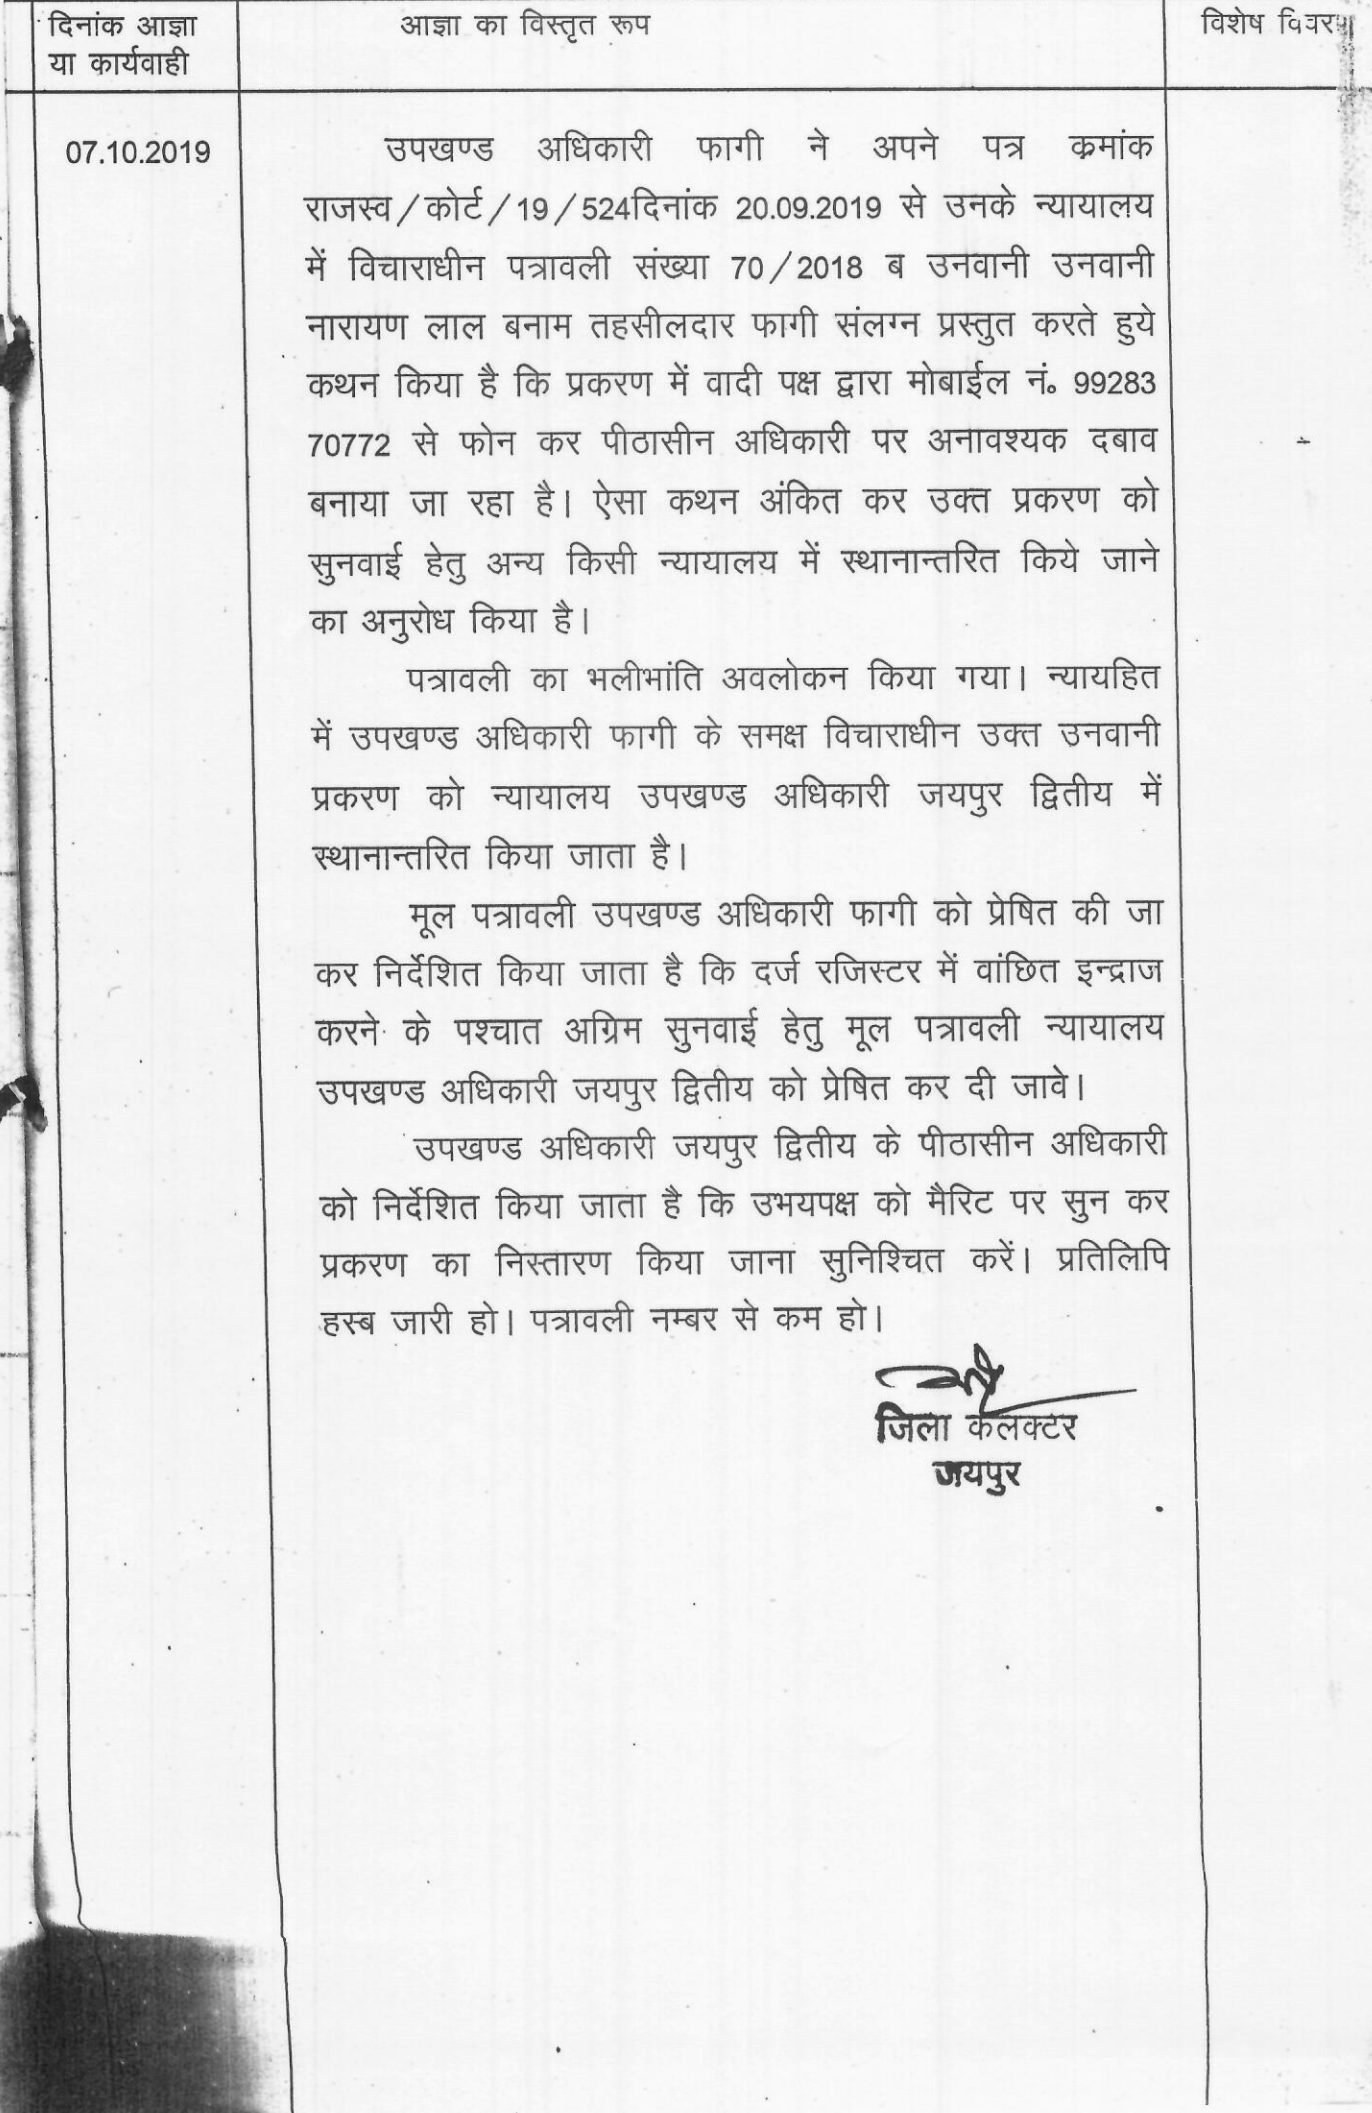 दिनांक आज्ञा
या कार्यवाही
आज्ञा का विस्तृत रूप
विशेष विवरण
07.10.2019
उपखण्ड अधिकारी फागी ने अपने पत्र क्रमांक
राजस्व/कोर्ट/19/524दिनांक 20.09.2019 से उनके न्यायालय
में विचाराधीन पत्रावली संख्या 70/2018 ब उनवानी उनवानी
नारायण लाल बनाम तहसीलदार फागी संलग्न प्रस्तुत करते हुये
कथन किया है कि प्रकरण में वादी पक्ष द्वारा मोबाईल नं. 99283
70772 से फोन कर पीठासीन अधिकारी पर अनावश्यक दबाव
बनाया जा रहा है। ऐसा कथन अंकित कर उक्त प्रकरण को
सुनवाई हेतु अन्य किसी न्यायालय में स्थानान्तरित किये जाने
का अनुरोध किया है।
पत्रावली का भलीभांति अवलोकन किया गया। न्यायहित
में उपखण्ड अधिकारी फागी के समक्ष विचाराधीन उक्त उनवानी
प्रकरण को न्यायालय उपखण्ड अधिकारी जयपुर द्वितीय में
स्थानान्तरित किया जाता है।
मूल पत्रावली उपखण्ड अधिकारी फागी को प्रेषित की जा
कर निर्देशित किया जाता है कि दर्ज रजिस्टर में वांछित इन्द्राज
करने के पश्चात अग्रिम सुनवाई हेतु मूल पत्रावली न्यायालय
उपखण्ड अधिकारी जयपुर द्वितीय को प्रेषित कर दी जावे।
उपखण्ड अधिकारी जयपुर द्वितीय के पीठासीन अधिकारी
को निर्देशित किया जाता है कि उभयपक्ष को मैरिट पर सुन कर
प्रकरण का निस्तारण किया जाना सुनिश्चित करें। प्रतिलिपि
हस्ब जारी हो। पत्रावली नम्बर से कम हो।
जिला कलक्टर
जयपुर